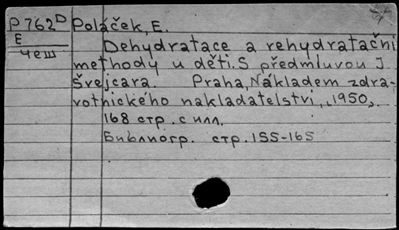 P 762 D Poláček, E.
E
чеш
Dehydratace a rehydratační
methody u dětí. S předmluvou J.
Švejcara. Praha, Nákladem zdra-
votnického nakladatelství, 1950.
168 стр. с илл.
Библиогр. стр. 155-165